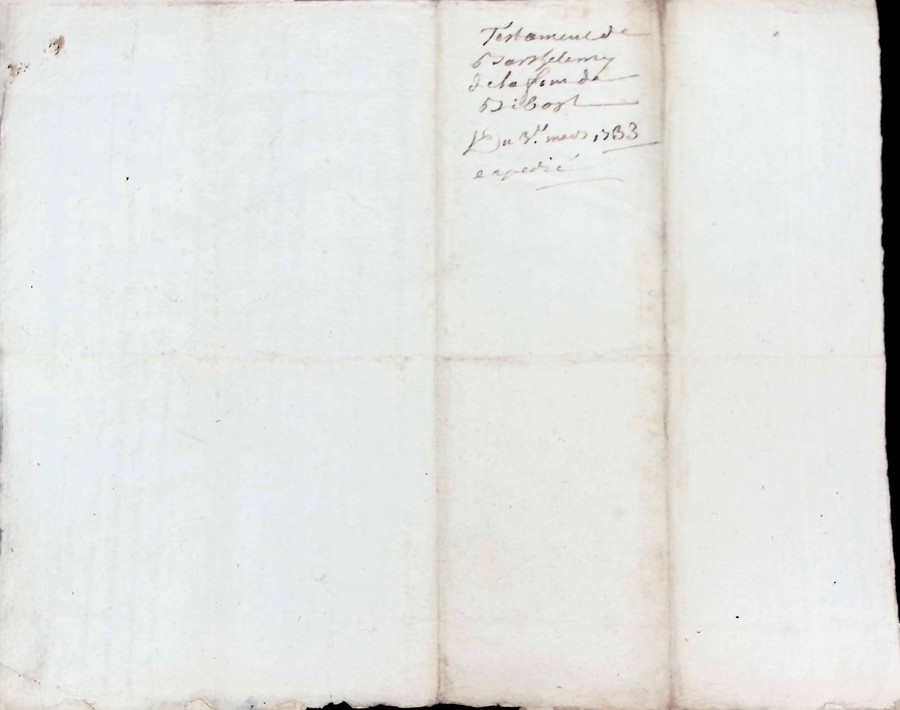 Testament de
Barthelemy
de la font de
Du 3e. mars 1733
expedié